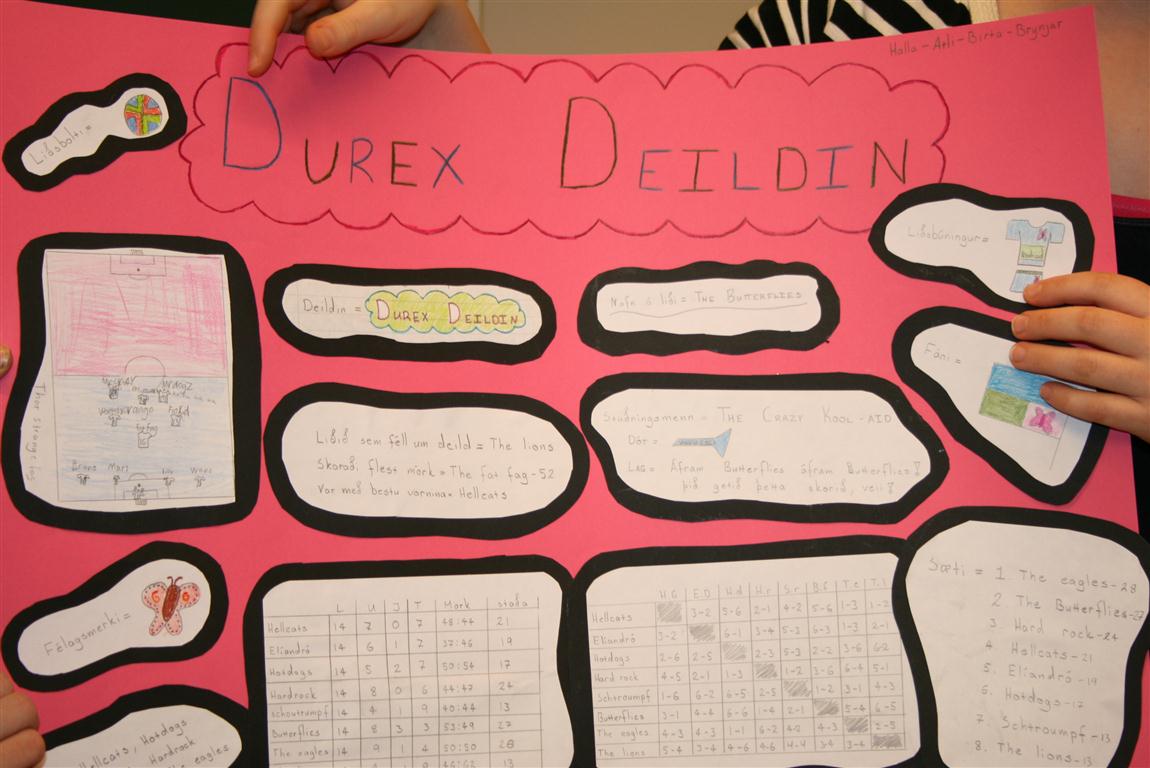 Halla - Atli - Birta - Brynjar
DUREX DEILDIN
Liðsbolti =
Liðsbúningur =
Deildin = DUREX DEILDIN
Nafn á liði = THE BUTTERFLIES
Fáni =
Liðið sem féll um deild = The lions
Skoraði flest mörk = The fat fag - 52
Var með bestu vörnina = Hellcats
Stuðningsmenn = THE CRAZY KOOL-AID
Dót =
LAG = Áfram Butterflies áfram Butterflies!
þið getið þetta skorið, veii!
Félagsmerki =
L U J T Mörk staða
Hellcats 14 7 0 7 48:44 21
Eliandró 14 6 1 7 37:46 19
Hotdogs 14 5 2 7 50:54 17
Hardrock 14 8 0 6 44:47 24
Schoutrumpf 14 4 1 9 40:44 13
Butterflies 14 8 3 3 53:49 27
The eagles 14 9 1 4 50:50 28
H.G E.D H.d H.r S.r B.f T.e T.l
Hellcats 3-2 5-6 2-1 4-2 5-6 1-3 1-2
Eliandró 3-2 6-1 3-4 5-3 6-3 1-3 2-1
Hotdogs 2-6 2-5 2-3 5-3 2-2 3-6 6-2
Hard rock 4-5 2-1 1-3 1-2 3-6 6-4 5-1
Schtroumpf 1-6 6-2 6-5 2-5 1-2 3-1 4-3
Butterflies 3-1 4-4 6-6 1-4 2-1 5-4 6-5
The eagles 4-3 4-3 1-1 6-2 4-2 4-3 2-5
The lions 5-4 3-4 4-6 4-6 4-4 3-4 3-4
Sæti = 1. The eagles - 28
2. The Butterflies - 27
3. Hard rock - 24
4. Hellcats - 21
5. Eliandró - 19
6. Hotdogs - 17
7. Schtroumpf - 13
8. The lions - 13
Hellcats, Hotdogs
Hardrock